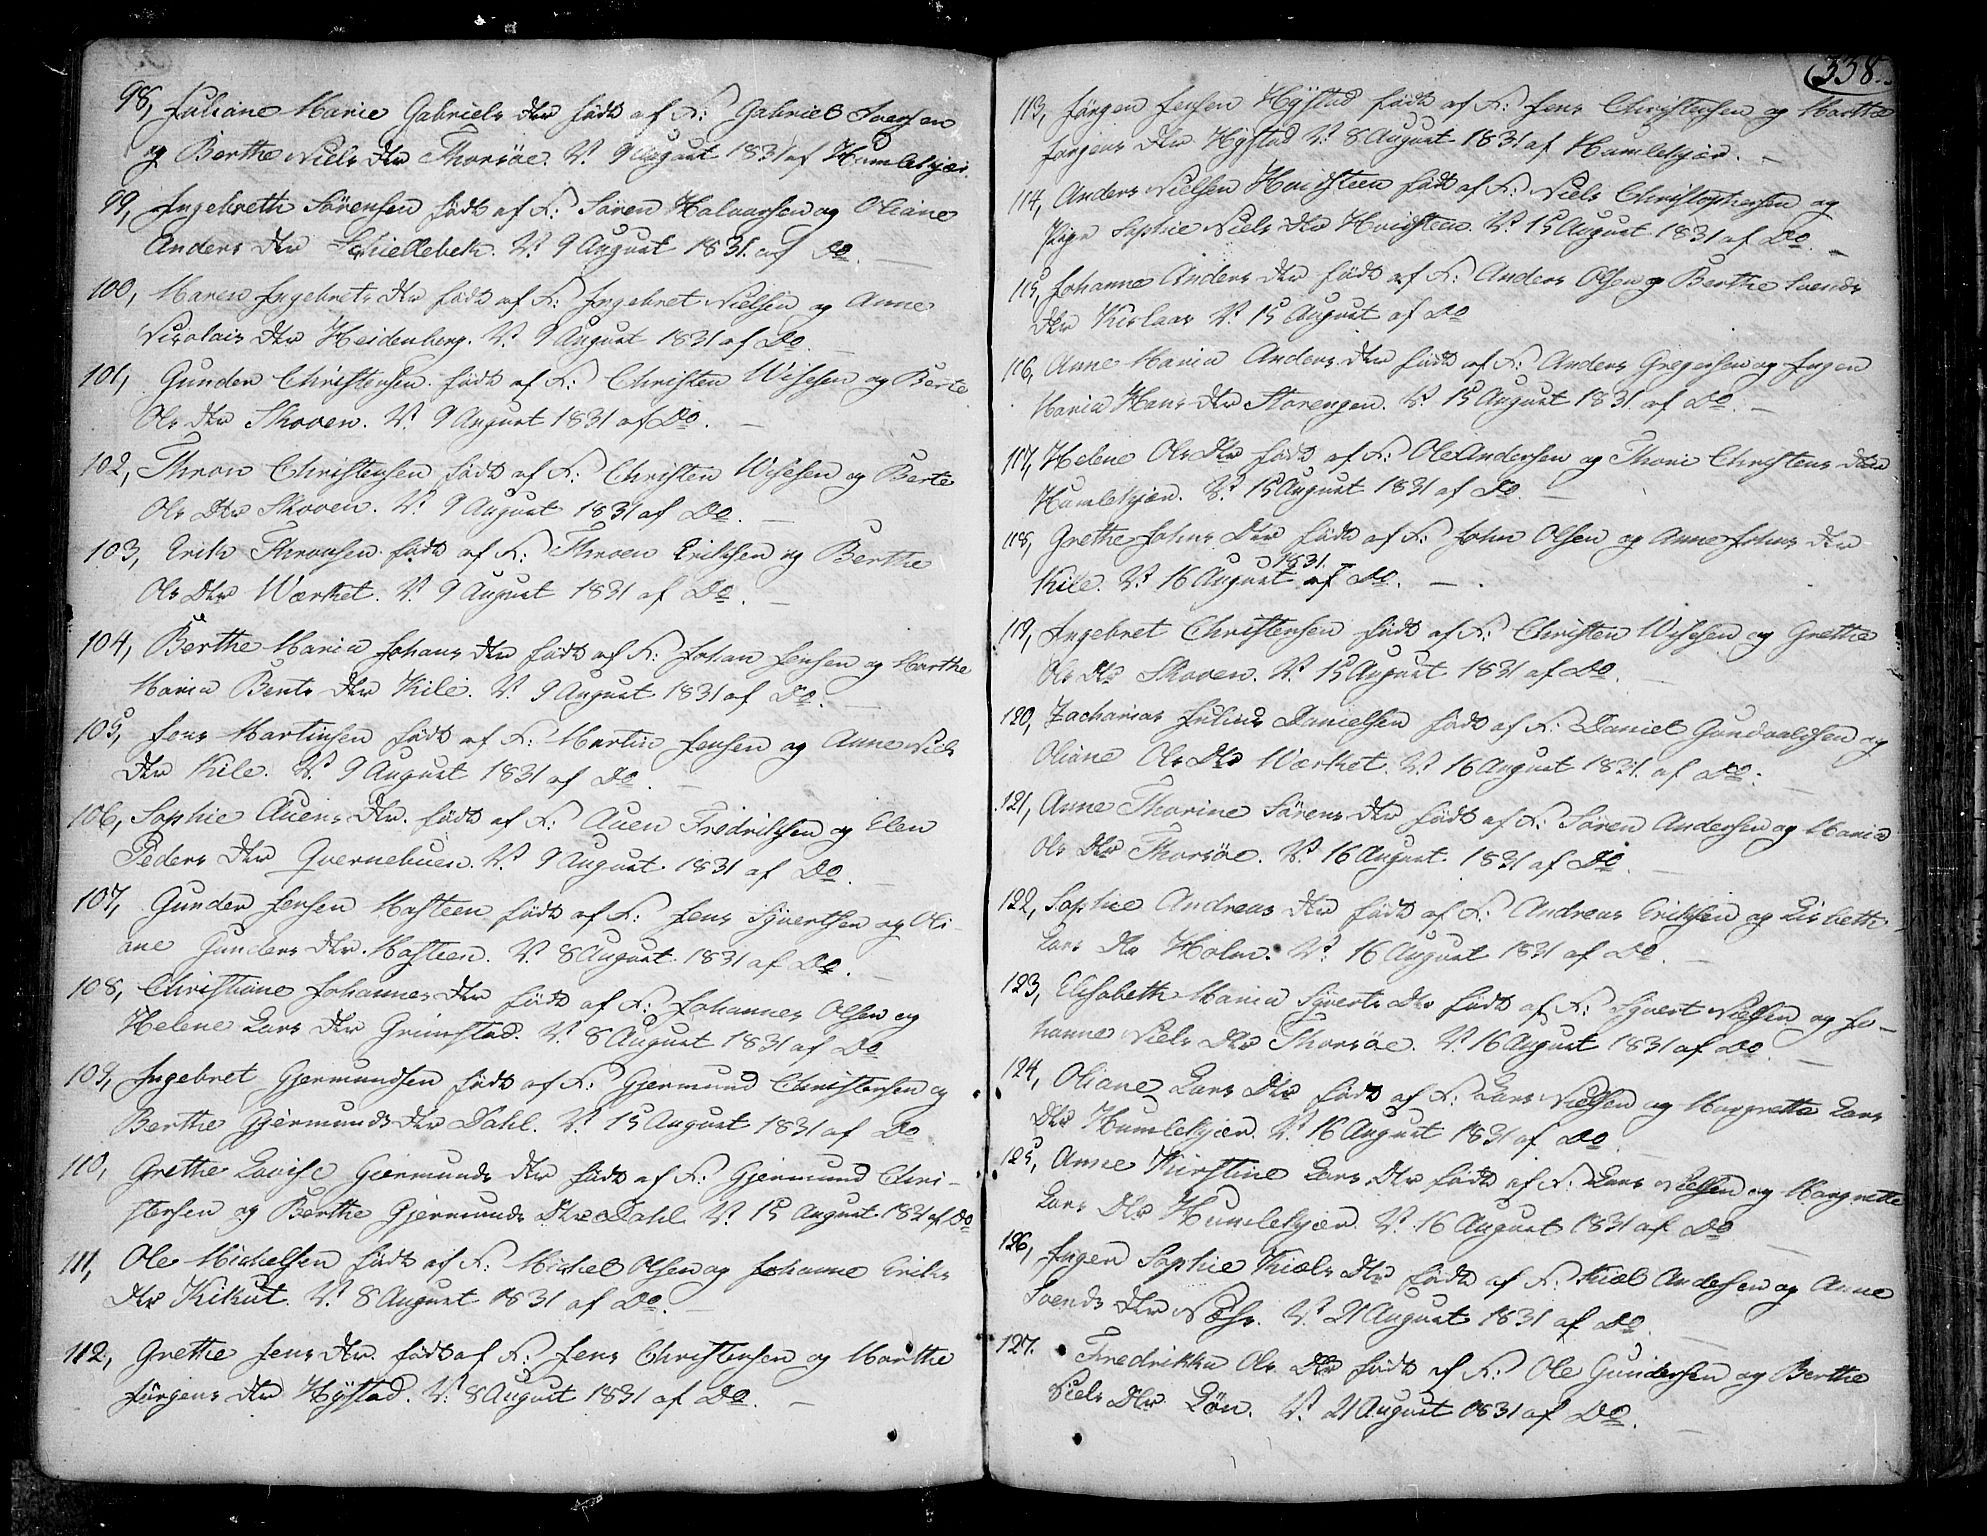 98, Juliane Marie Gabriels Dtr født af F: Gabriel Iversen
og Berthe Niels Dtr Thorsøe. V. 9 August 1831 af Humlekjær.
99, Ingebreth Sörensen født af F: Sören Halvorsen og Oliane
Anders Dtr Schiellebek. V. 9 August 1831 af Do.
100, Maren Ingebrets Dtr født af F: Ingebret Nielsen og Anne
Nicolais Dtr Heidenberg. V. 9 August 1831 af Do.
101, Gunder Christensen født af F: Christen Wisesen og Berte
Ols Dtr Skoven. V. 9 August 1831 af Do.
102, Thron Christensen født af F: Christen Wisesen og Berte
Ols Dtr Skoven. V. 9 August 1831 af Do.
103, Erik Thronsen født af F: Thron Eriksen og Berthe
Ols Dtr Wærket. V. 9 August 1831 af Do.
104, Berthe Maria Johans Dtr født af F: Johan Jensen og Marthe
Maria Bents Dtr Kile. V. 9 August 1831 af Do.
105, Jens Martinsen født af F: Martin Jensen og Anne Niels
Dtr Kile. V. 9 August 1831 af Do.
106, Sophie Auens Dtr. født af F: Auen Fredriksen og Elen
Peders Dtr Qvernebuen. V. 9 August 1831 af Do.
107, Gunder Jensen Mosteen født af F: Jens Syvertsen og Oli-
ane Gunders Dtr. Mosteen. V. 8 August 1831 af Do.
108, Christiane Johannes Dtr født af F: Johannes Olsen og
Helene Lars Dtr Grimstad. V. 8 August 1831 af Do
109, Ingebret Gjermundsen født af F: Gjermund Christensen og
Berthe Gjermunds Dtr Dahl. V. 15 August 1831 af Do
110, Grethe Lovise Giermunds Dtr født af F: Gjermund Chri-
stensen og Berthe Gjermunds Dtr Dahl V. 15 August 1831 af Do
111, Ole Michelsen født af F: Michel Olsen og Johanne Eriks
Dtr Kikut. V. 8 August 1831 af Do.
112, Grethe Jens Dtr. født af F: Jens Christensen og Marthe
Jörgens Dtr Hÿstad. V. 8 August 1831 af Do.
338.
113, Jörgen Jensen Hÿstad født af F: Jens Christensen og Marthe
Jörgens Dtr Hÿstad V. 8 August 1831 af Humlekjær.
114, Anders Nielsen Hvidsteen født af F: Niels Christophersen og
Pige Sophie Niels Dtr Hvidsteen. V. 15 August 1831 af Do.
115, Johanne Anders Dtr født af F: Anders Olsen og Berthe Svends
Dtr Kirlaas V. 15 August af Do
116, Anne Maria Anders Dtr født af F: Anders Gregersen og Ingen
Maria Hans Dtr Storengen. V. 15 August 1831 af Do.
117, Helene Ols Dtr født af F: Ole Andersen og Thore Christens Dtr
Humlekjær. V. 15 August 1831 af Do.
118, Grethe Johns Dtr født af F: John Olsen og Anne Johns Dtr
Kile. V. 16 August 1831 af Do.
119, Ingebret Christensen født af F: Christen Wisesen og Grethe
Ols Dtr Skoven. V. 15 August 1831 af Do.
120, Zacharias Julius Danielsen født af F: Daniel Gundvaldsen og
Oliane Ols Dtr Wærket. V. 16 August 1831 af Do.
121, Anne Thorine Sörens Dtr født af F: Sören Andersen og Maria
Ols Dtr Thorsöe. V. 16 August 1831 af Do.
122, Sophie Andreas Dtr født af F: Andreas Eriksen og Lisbeth
Lars Dtr Holm. V. 16 August 1831 af Do.
123, Elisabeth Maria Syverts Dtr født af F: Syvert Nielsen og Jo-
hanne Niels Dtr Thorsöe. V. 16 August 1831 af Do.
124, Oliane Lars Dtr født af F: Lars Nielsen og Margrethe Lars
Dtr Humlekjær. V. 16 August 1831 af Do.
125, Anne Kirstine Lars Dtr født af F: Lars Nielsen og Margrethe
Lars Dtr Humlekjær. V. 16 August 1831 af Do
126, Ingen Sophie Kiels Dtr født af F: Kiel Andersen og Anne
Svends Dtr Næss. V. 21 August 1831 af Do.
127. Fredrikka Ols Dtr født af F: Ole Gundersen og Berthe
Niels Dtr Lön. V. 21 August 1831 af Do.